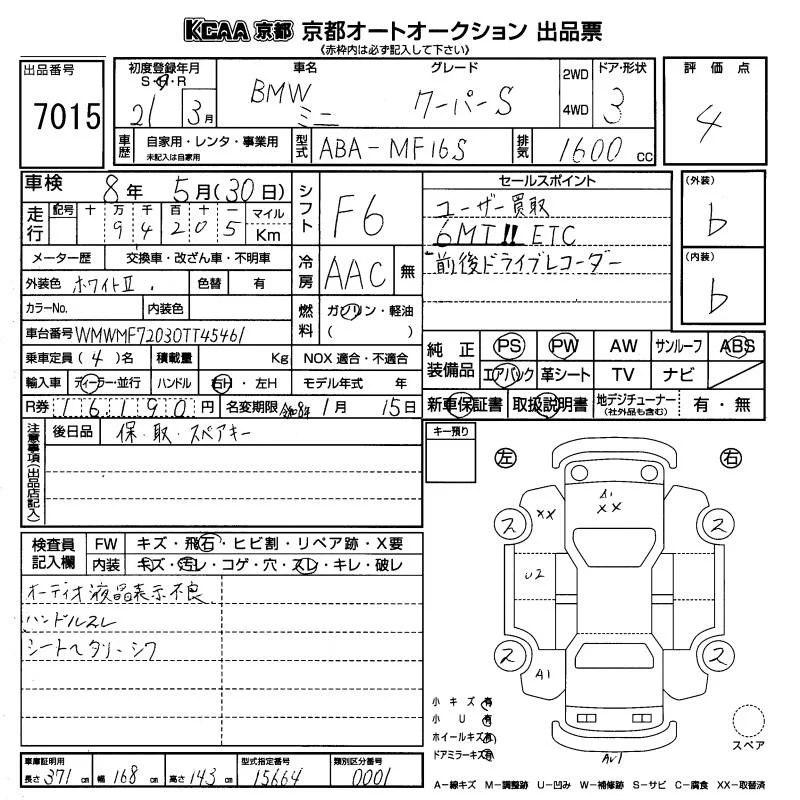 KCAA 京都 京都オートオークション 出品票
《赤枠内は必ず記入して下さい》
出品番号 7015
初度登録年月 S・H・R 21 3月
車名 BMW ミニ
グレード クーパーS
2WD 4WD
ドア・形状 3
評価点 4
車歴 自家用・レンタ・事業用 未記入は自家用
型式 ABA-MF16S
排気 1600 cc
車検 8年 5月(30日)
シフト F6
走行 記号 十 万 千 百 十 一 マイル Km
9 4 2 0 5
メーター歴 交換車・改ざん車・不明車
冷房 AAC 無
外装色 ホワイトⅡ 色替 有
カラーNo. 内装色
燃料 ガソリン・軽油 ( )
車台番号 WMWMF72030TT45461
乗車定員 (4)名 積載量 Kg NOX 適合・不適合
輸入車 ディーラー・並行 ハンドル 右H・左H モデル年式 年
R券 16,190円 名変期限 令和8年 1月 15日
セールスポイント
ユーザー買取
6MT!! ETC
前後ドライブレコーダー
(外装) b
(内装) b
純正装備品 PS PW AW サンルーフ ABS
エアバック 革シート TV ナビ
新車保証書 取扱説明書 地デジチューナー (社外品も含む) 有・無
注意事項(出品店記入)
後日品 保・取・スペアキー
キー預り
左 右
検査員記入欄
FW キズ・飛石・ヒビ割・リペア跡・X要
内装 キズ・汚レ・コゲ・穴・スレ・キレ・破レ
オーディオ液晶表示不良
ハンドルスレ
シートヘタリ・シワ
A1
XX
XX
ス ス
U2
ス ス
A1
小キズ 有
小U 有
ホイールキズ 有
ドアミラーキズ 有
スペア
車庫証明用 長さ 371cm 幅 168cm 高さ 143cm
型式指定番号 15664
類別区分番号 0001
A-線キズ M-調整跡 U-凹み W-補修跡 S-サビ C-腐食 XX-取替済